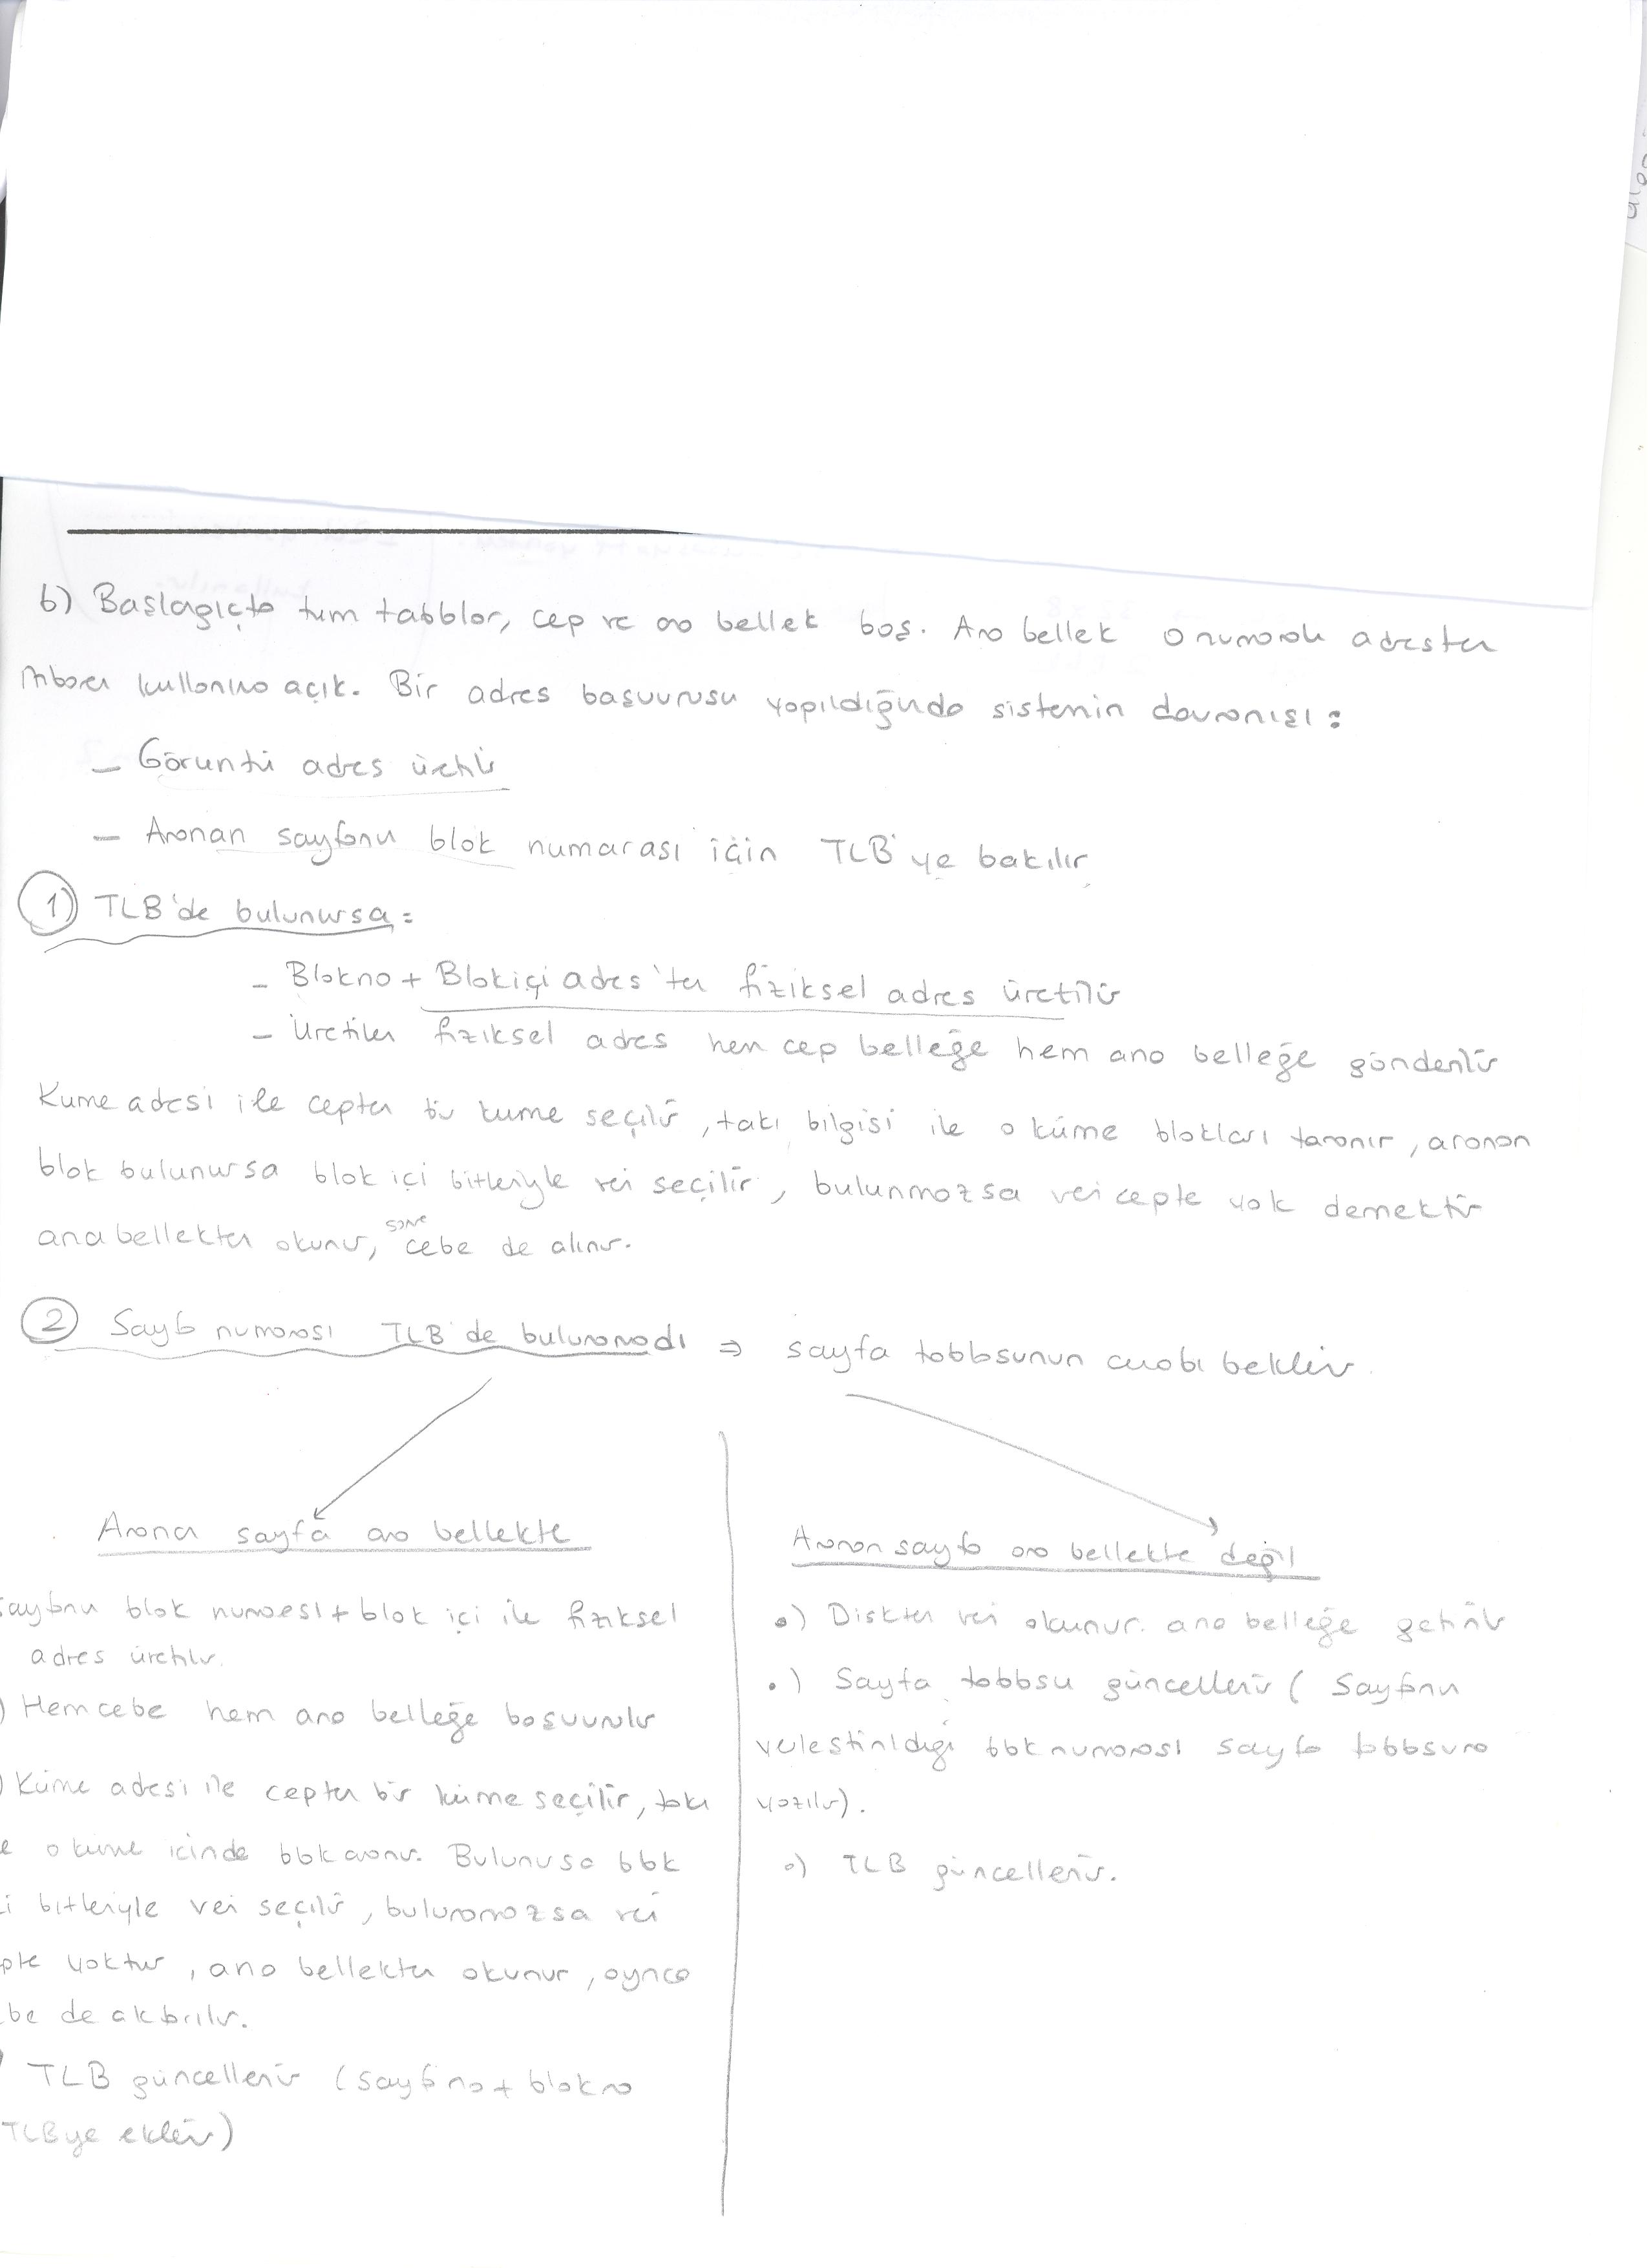 b) Başlagıçta tüm tablolar, cep ve ana bellek boş. Ana bellek 0 numaralı adresten
itibaren kullanıma açık. Bir adres başvurusu yapıldığında sistemin davranışı:
- Görüntü adres üretilir
- Aranan sayfanın blok numarası için TLB'ye bakılır
1) TLB'de bulunursa:
- Blokno + Blokiçi adres'ten fiziksel adres üretilir
- Üretilen fiziksel adres hem cep belleğe hem ana belleğe gönderilir
Küme adresi ile cepten bir küme seçilir, takı bilgisi ile o küme blokları taranır, aranan
blok bulunursa blok içi bitleriyle veri seçilir, bulunmazsa veri cepte yok demektir
ana bellekten okunur, sonra cebe de alınır.
2) Sayfa numarası TLB'de bulunamadı ⇒ sayfa tablosunun cevabı beklenir.
Aranan sayfa ana bellekte
sayfanın blok numarası + blok içi ile fiziksel
adres üretilir.
) Hem cebe hem ana belleğe başvurulur
) Küme adresi ile cepten bir küme seçilir, takı
e o küme içinde blok aranır. Bulunursa blok
i bitleriyle veri seçilir, bulunamazsa veri
pte yoktur, ana bellekten okunur, ayrıca
be de aktarılır.
TLB güncellenir (sayfa no + blok no
TLBye eklenir)
Aranan sayfa ana bellekte değil
•) Diskten veri okunur. ana belleğe getirilir
•) Sayfa tablosu güncellenir (Sayfanın
yerleştirildiği blok numarası sayfa tablosuna
yazılır).
•) TLB güncellenir.